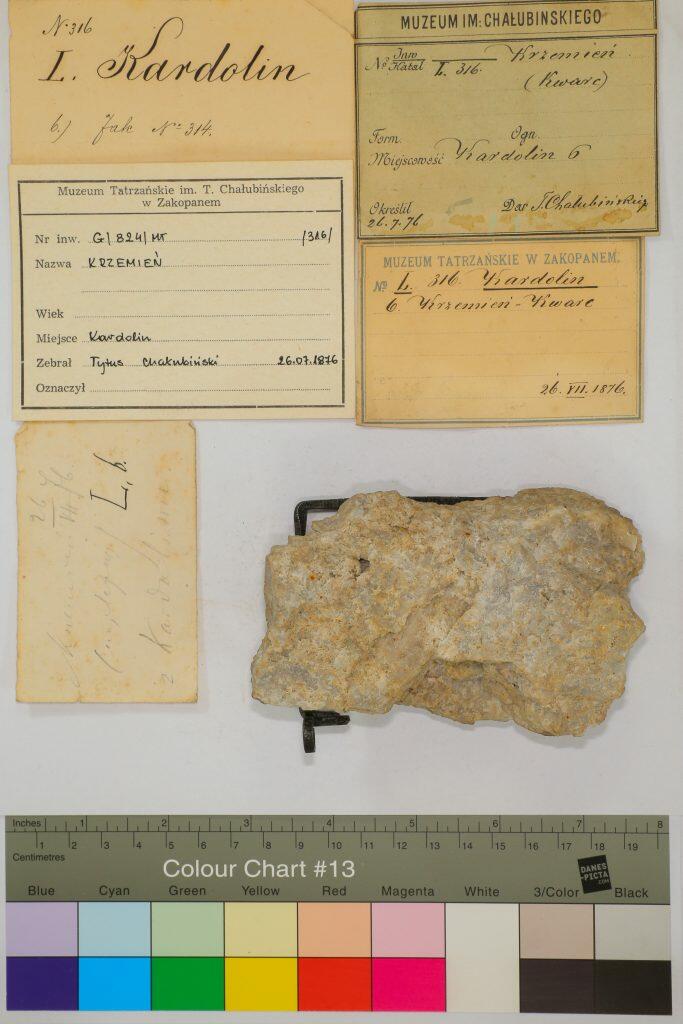 N. 316
I. Kardolin
b.) Jak No 314.
MUZEUM IM: CHAŁUBINSKIEGO
No Inw Katal L. 316. Krzemień
(Kwarc)
Form. Ogn.
Miejscowość Kardolin 6
Określił Dar T. Chałubińskiego
26.7.76
Muzeum Tatrzańskie im. T. Chałubińskiego
w Zakopanem
Nr inw. G/824/MT /316/
Nazwa KRZEMIEŃ
Wiek
Miejsce Kardolin
Zebrał Tytus Chałubiński 26.07.1876
Oznaczył
MUZEUM TATRZAŃSKIE W ZAKOPANEM.
No L. 316. Kardolin
6. Krzemień - Kwarc
26. VII. 1876.
26 VII 76
L, b.
z Kardolina
Inches 1 2 3 4 5 6 7 8
1 2 3 4 5 6 7 8 9 10 11 12 13 14 15 16 17 18 19
Centimetres
Colour Chart #13
DANES
-PICTA
.COM
Blue Cyan Green Yellow Red Magenta White 3/Color Black